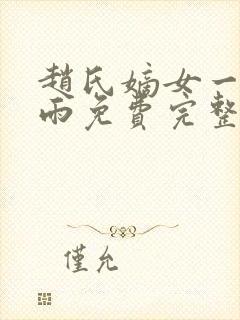 趙氏嫡女一
雨免費完整
僅允